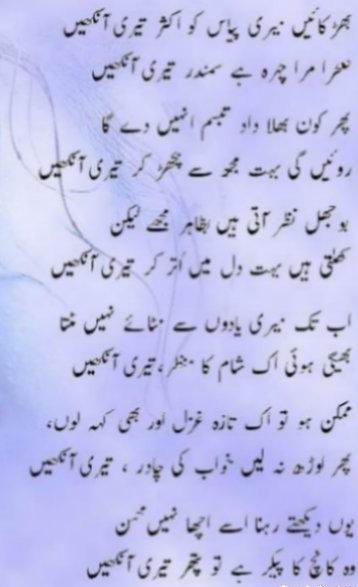 بھڑکائیں میری پیاس کو اکثر تیری آنکھیں
صحرا مرا چہرہ ہے سمندر تیری آنکھیں
پھر کون بھلا داد تبسم انہیں دے گا
روئیں گی بہت مجھ سے بچھڑ کر تیری آنکھیں
بوجھل نظر آتی ہیں بظاہر مجھے لیکن
کھلتی ہیں بہت دل میں اُتر کر تیری آنکھیں
اب تک میری یادوں سے مٹائے نہیں مٹتا
بھیگی ہوئی اک شام کا منظر، تیری آنکھیں
ممکن ہو تو اک تازہ غزل اور بھی کہہ لوں،
پھر اوڑھ نہ لیں خواب کی چادر ، تیری آنکھیں
یوں دیکھتے رہنا اسے اچھا نہیں محسن
وہ کانچ کا پیکر ہے تو پتھر تیری آنکھیں